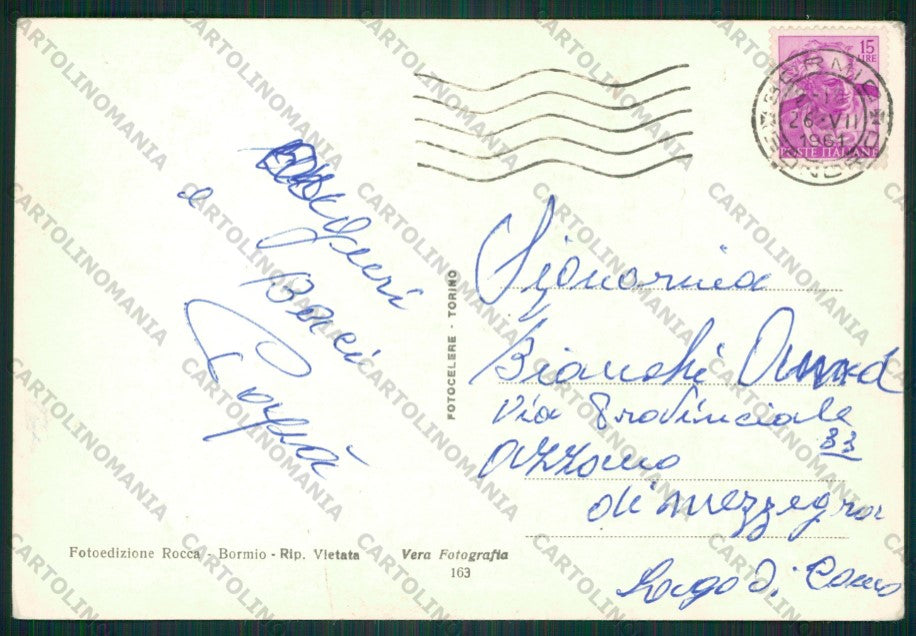 15
LIRE
POSTE ITALIANE
BORMIO
26·VII
1961
SONDRIO
Auguri
e Baci
Papà
FOTOCELERE - TORINO
Signorina
Bianchi
Via Provinciale
33
Azzano
di Mezzegra
Lago di Como
Fotoedizione Rocca - Bormio - Rip. Vietata
Vera Fotografia
163
CARTOLINOMANIA